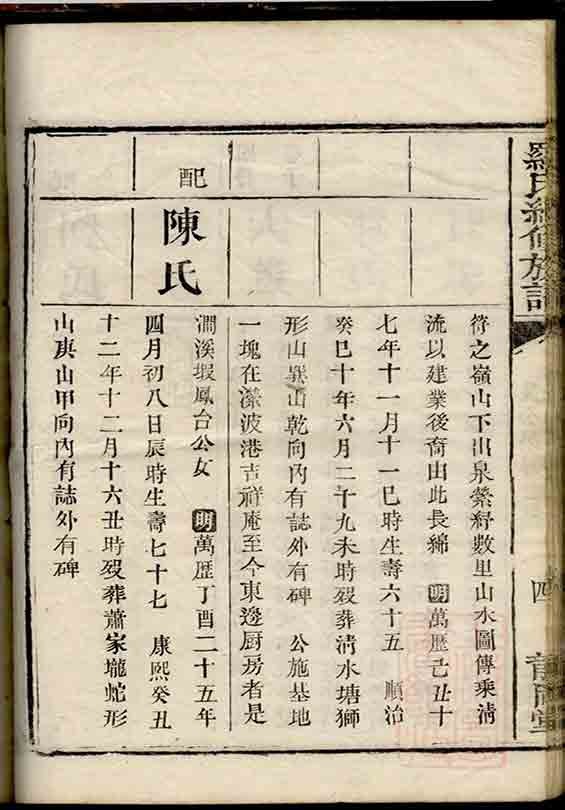 羅氏續修族譜
四
符之嶺山下出泉縈紆數里山水圖傳乘清
流以建業後裔由此長綿 明萬歷己丑十
七年十一月十一巳時生壽六十五 順治
癸巳十年六月二十九未時歿葬清水塘獅
形山巽山乾向內有誌外有碑 公施基地
一塊在瀠波港吉祥庵至今東邊厨房者是
配
陳氏
澗溪塅鳳台公女 明萬歷丁酉二十五年
四月初八日辰時生壽七十七 康熙癸丑
十二年十二月十六丑時歿葬蕭家壠蛇形
山庚山甲向內有誌外有碑